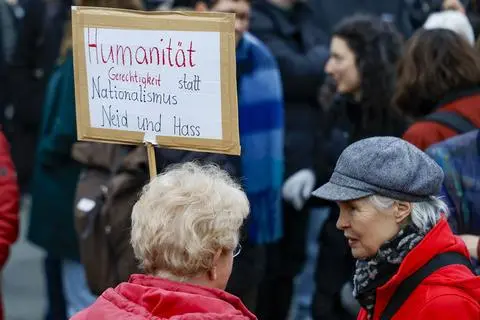 Humanität
Gerechtigkeit statt
Nationalismus
Neid und Hass